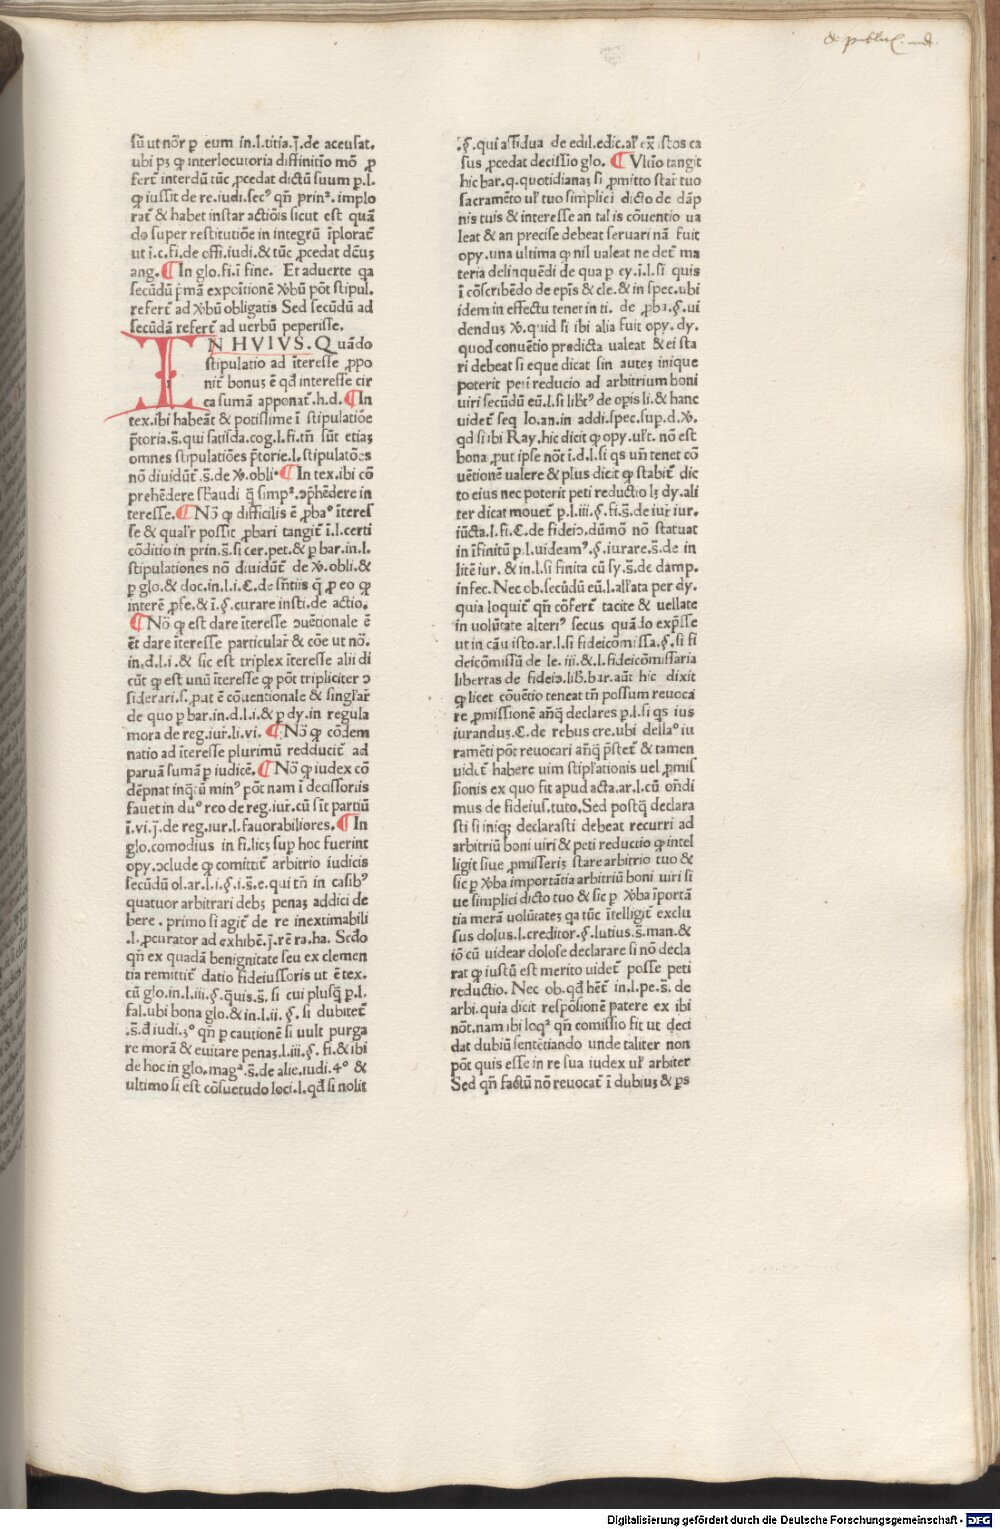 sũ ut nor̃ ꝑ eum in.l.titia.j̃.de accusat.
ubi pꝫ ꝙ interlocutoria diffinitĩo mõ ꝓ
fert̃ interdũ tũc ꝓcedat dictũ suum p.l.
ꝙ iussit de re.iudi.secꝰ qñ prinᵃ.implo
rat̃ & habet instar actiõis sicut est quã
do super restitutiõe in integrũ ĩplorat̃
ut ĩ.c.fi.de offi.iudi.& tũc ꝓcedat dc̃us
ang. ¶ In glo.fi.ĩ fine. Et aduerte qa
secũdũ p̃mã expoĩtionẽ v̉bũ põt stipul.
refert̃ ad v̉bũ obligatis Sed secũdũ ad
secũdã refert̃ ad uerbũ peperisse.
IN HVIVS. Quãdo
stipulatio ad ĩteresse ꝓpo
nit̃ bonuꝫ ẽ qd̃ interesse cir
ca sumã apponat̃.h.d. ¶ In
tex.ibi habeãt & potissime ĩ stipulatiõe
p̃toria.s̃.qui satisda.cog.l.fi.tñ sũt etiaꝫ
omnes stipulatiões p̃torie.l.stipulatões
nõ diuidũt̃.s̃.de v̉.obli. ¶ In tex.ibi cõ
prehẽdere sƀaudi q̃ simpᵃ.ↄp̃hẽdere in
teresse. ¶ Nõ ꝙ difficilis ẽ ꝓbaᵒ ĩteres
se & qual'r possit ꝓbari tangit̃ ĩ.l.certi
cõditio in prin.s̃.si cer.pet.& ꝑ bar.in.l.
stipulationes nõ diuidũt̃ de v̉.obli.&
ꝑ glo.& doc.in.l.i.C.de sñtiis q̃ ꝑ eo ꝙ
interẽ ꝓfe.& ĩ.§.curare insti.de actio.
¶ Nõ ꝙ est dare ĩteresse ↄuẽtionale ẽ
ẽt dare ĩteresse particular̃ & cõe ut nõ.
in.d.l.i.& sic est triplex ĩteresse alii di
cũt ꝙ est unũ ĩteresse ꝙ põt tripliciter ↄ
siderari.s.ꝓut ẽ cõuentionale & singl'ar̃
de quo ꝑ bar.in.d.l.i.& ꝑ dy.in regula
mora de reg.iur̃.li.vi. ¶ Nõ ꝙ cõdem
natio ad ĩteresse plurimũ redducit̃ ad
paruã sumã ꝑ iudicẽ. ¶ Nõ ꝙ iudex cõ
dẽpnat inq̃tũ minꝰ põt nam ĩ decissoriis
fauet in duᵒ reo de reg.iur̃.cũ sĩt partiũ
ĩ.vi.j̃.de reg.iur.l.fauorabiliores. ¶ In
glo.comodius in fi.licꝫ sup hoc fuerint
opy.ↄclude ꝙ comittit̃ arbitrio iudicis
secũdũ ol.ar.l.i.§.i.s̃.e.qui tñ in casibꝰ
quatuor arbitrari debꝫ penaꝫ addici de
bere . primo si agit̃ de re inextimabili
.l.ꝓcurator ad exhibẽ.j̃.rẽ ra.ha. Scd̃o
qñ ex quadã benignitate seu ex clemen
tia remittit̃ datio fideiussoris ut ẽ tex.
cũ glo.in.l.iii.§.q̃uis.s̃. si cui plusq̃ p.l.
fal.ubi bona glo.& in.l.ii. §. si dubitet̃
.s̃.d̃ iudi.3ᵒ qñ ꝑ cautionẽ si uult purga
re morã & euitare penaꝫ.l.iii.§. fi.& ibi
de hoc in glo.magᵃ.s̃.de alie.iudi.4ᵒ &
ultimo si est cõsuetudo loci.l.qd̃ si nolit
.§. qui assidua de edil.edic.al' ex̃ istos ca
sus ꝓcedat decissio glo. ¶ Vltĩo tangit
hic bar.q.quotidianaꝫ si ꝓmitto star̃ tuo
sacramẽto ul' tuo simplici dicto de dãp
nis tuis & interesse an talis cõuentio ua
leat & an precise debeat seruari nã fuit
opy.una ultima ꝙ nil ualeat ne det̃ ma
teria delinquẽdi de qua ꝑ cy.ĩ.l.si quis
ĩ cõscribẽdo de epĩs & cle.& in spec.ubi
idem in effectu tenet in ti. de ꝓba.§.ui
dendus v̉.quid si ibi alia fuit opy. dy.
quod conuẽtio predicta ualeat & ei sta
ri debeat si eque dicat sin auteꝫ inique
poterit peti reducio ad arbitrium boni
uiri secũdũ eũ.l.si lib'tꝰ de opis li.& hanc
uidet̃ seq̃ Io.an.in addi.spec.sup.d.v̉.
qd̃ si ibi Ray.hic dicit ꝙ opy.ul't. nõ est
bona ꝓut ipse nõt ĩ.d.l.si qs un̄ tenet cõ
uẽtionẽ ualere & plus dicit ꝙ stabit̃ dic
to eius nec poterit peti reductio lꝫ dy.ali
ter dicat mouet̃ ꝑ.l.iii.§.fi.s̃.de iur̃ iur.
iũcta.l.fi.C.de fideiↄ.dũmõ nõ statuat
in ĩfinitũ p.l.uideamꝰ.§.iurare.s̃.de in
litẽ iur.& in.l.si finita cũ sy.s̃.de damp.
infec. Nec ob.secũdũ eũ.l.all'ata per dy.
quia loquit̃ qñ cõfert̃ tacite & uellate
in uolũtate alteriꝰ secus quãdo exp̃sse
ut in cãu isto.ar.l.si fideicõmissa.§.si fi
deicõmissũ de le.iii.& l.fideicõmissaria
libertas de fideiↄ.lib̃.bar.aũt hic dixit
ꝙ licet cõuẽtio teneat tñ possum reuoca
re ꝓmissionẽ añq̃ declares p.l.si qs ius
iuranduꝫ.C.de rebus cre.ubi dellaᵒ iu
ramẽti põt reuocari añq̃ p̃stet̃ & tamen
uidet̃ habere uim stipl'ationis uel ꝓmis
sionis ex quo fit apud acta.ar.l.cũ oñdi
mus de fideius.tuto.Sed postq̃ declara
sti si iniqꝫ declarasti debeat recurri ad
arbitriũ boni uiri & peti reductio ꝙ intel
ligit siue ꝓmisseris stare arbitrio tuo &
sic ꝑ v̉ba importãtia arbitriũ boni uiri si
ue simplici dicto tuo & sic ꝑ v̉ba ĩportã
tia merã uolũtateꝫ qa tũc ĩtelligit̃ exclu
sus dolus.l.creditor.§.lutius.s̃.man.&
iõ cũ uidear dolose declarare si nõ decla
rat ꝙ iustũ est merito uidet̃ posse peti
reductio. Nec ob.qd̃ hẽt̃ in.l.pe.s̃. de
arbi.quia dicit respõsionẽ patere ex ibi
nõt.nam ibi loqᵃ qñ comissio fit ut deci
dat dubiũ sentẽtiando unde taliter non
põt quis esse in re sua iudex ul' arbiter
Sed qñ factũ nõ reuocat̃ ĩ dubiuꝫ & ꝑs
Digitalisierung gefördert durch die Deutsche Forschungsgemeinschaft - DFG